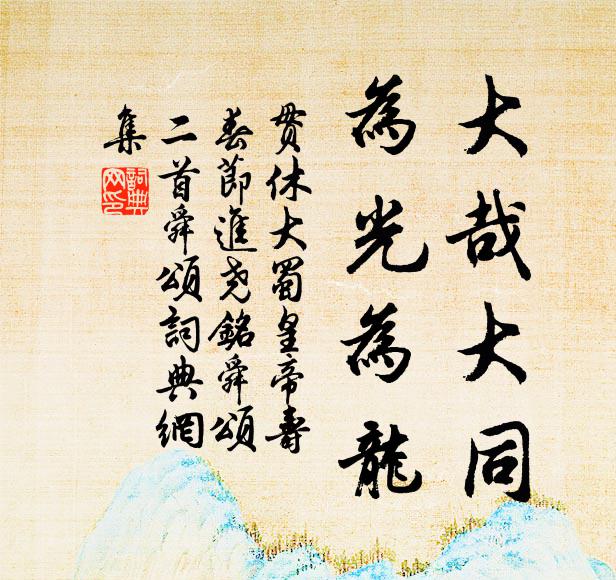 大哉大同
為光為龍
貫休大蜀皇帝壽
春節進堯銘舜頌
二首舜頌詞典網
集
詞典
网印